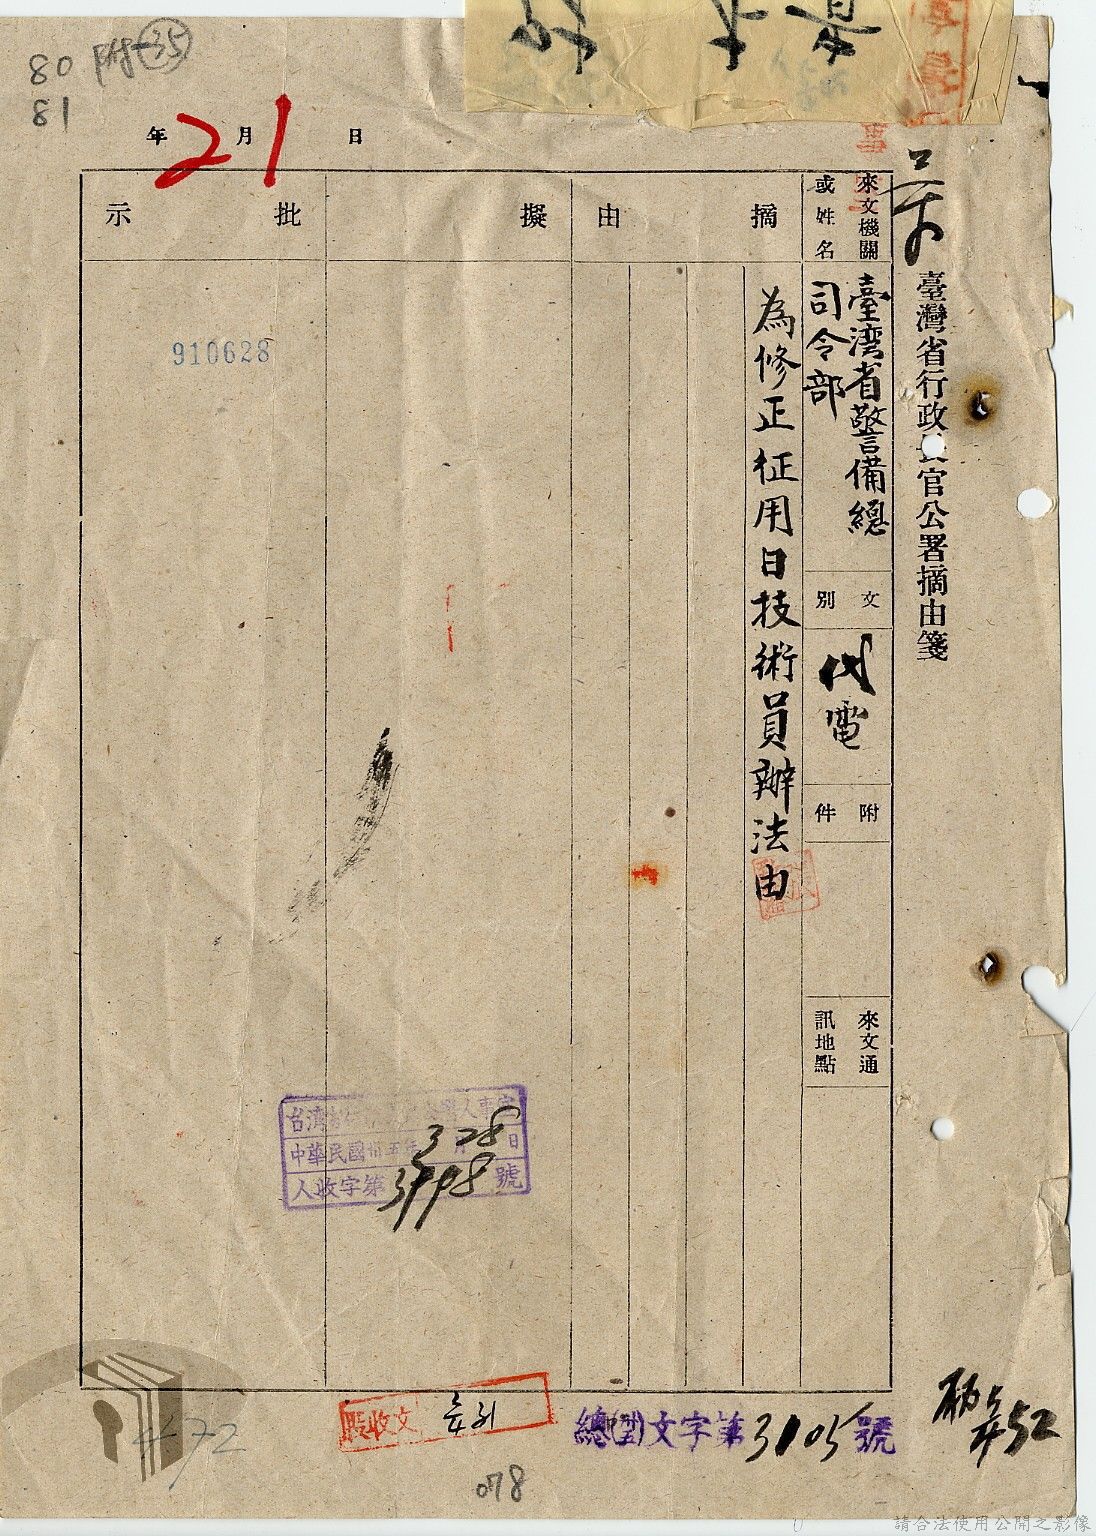 80 附-35
81
年 月 日
21
臺灣省行政長官公署摘由箋
來文機關
或姓名
臺湾省警備總
司令部
文別
代電
附件
來文通
訊地點
摘 由
為修正征用日技術員辦法由
擬
批 示
910628
人事室
中華民國卅五年3月28日
人收字第 號
股收文
總 文字第3105號
472
078
請合法使用公開之影像